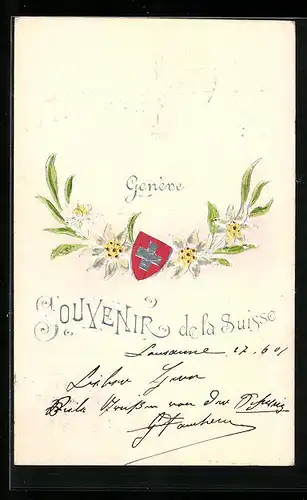 Genève
SOUVENIR de la Suisse
Lausanne 17.6.01
Lieber
Viele Grüßen von der Schweiz